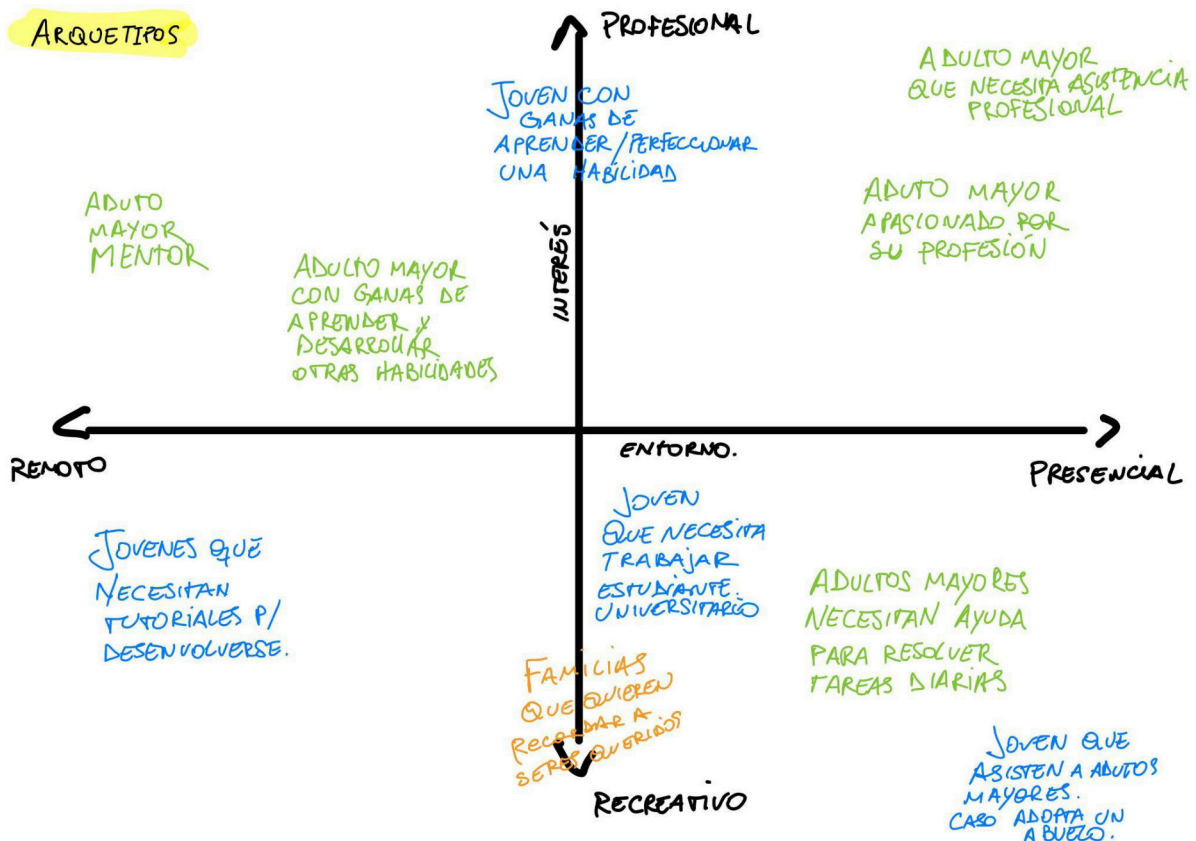 ARQUETIPOS
PROFESIONAL
JOVEN CON
GANAS DE
APRENDER/PERFECCIONAR
UNA HABILIDAD
ADULTO MAYOR
QUE NECESITA ASISTENCIA
PROFESIONAL
ADUTO
MAYOR
MENTOR
ADULTO MAYOR
CON GANAS DE
APRENDER Y
DESARROLLAR
OTRAS HABILIDADES
INTERÉS
ADUTO MAYOR
APASIONADO POR
SU PROFESIÓN
REMOTO
ENTORNO.
PRESENCIAL
JOVENES QUE
NECESITAN
TUTORIALES P/
DESENVOLVERSE.
JOVEN
QUE NECESITA
TRABAJAR
ESTUDIANTE.
UNIVERSITARIO
ADULTOS MAYORES
NECESITAN AYUDA
PARA RESOLVER
TAREAS DIARIAS
FAMILIAS
QUE QUIEREN
RECORDAR A
SERES QUERIDOS
RECREATIVO
JOVEN QUE
ASISTEN A ADUTOS
MAYORES.
CASO ADOPTA UN
ABUELO.